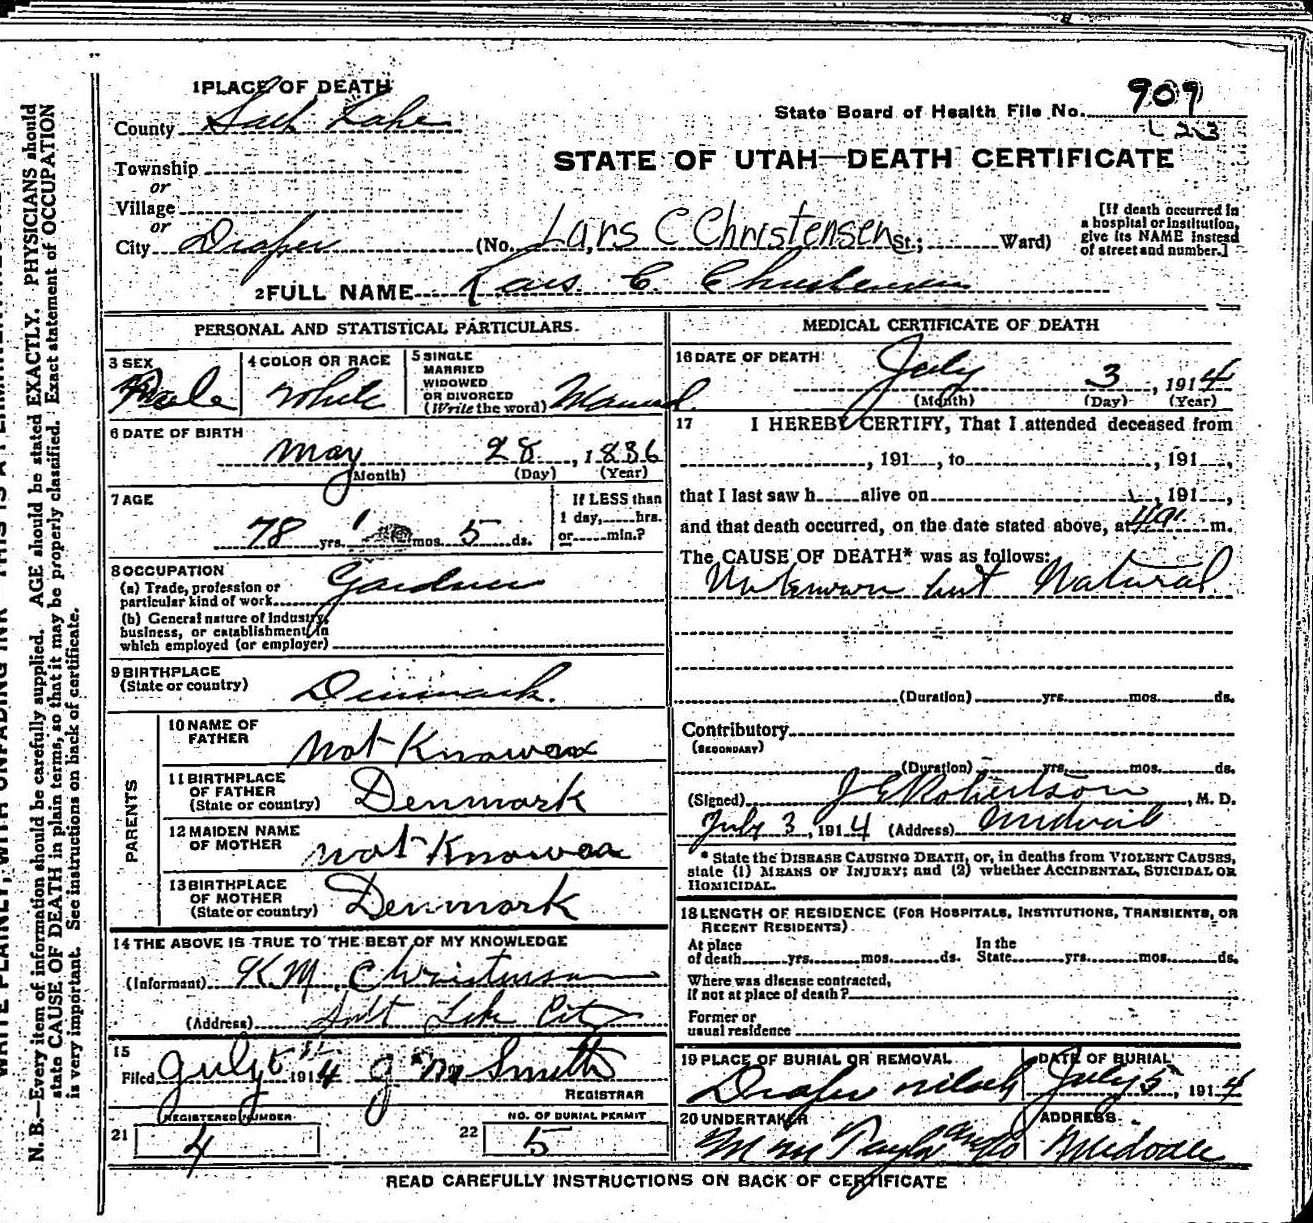 1 PLACE OF DEATH
County Salt Lake
State Board of Health File No. 909
L 23
Township
or
Village
or
City Draper
STATE OF UTAH—DEATH CERTIFICATE
(No. Lars C Christensen St.; Ward)
[If death occurred in
a hospital or institution,
give its NAME instead
of street and number.]
2 FULL NAME Lars C. Christensen
PERSONAL AND STATISTICAL PARTICULARS.
3 SEX Male
4 COLOR OR RACE White
5 SINGLE
MARRIED
WIDOWED
OR DIVORCED
(Write the word) Married
6 DATE OF BIRTH
May 28, 1836
(Month) (Day) (Year)
7 AGE
78 yrs. 1 mos. 5 ds.
If LESS than
1 day, hrs.
or min.?
8 OCCUPATION
(a) Trade, profession or
particular kind of work Gardner
(b) General nature of Industry,
business, or establishment in
which employed (or employer)
9 BIRTHPLACE
(State or country) Denmark.
PARENTS
10 NAME OF
FATHER not Known
11 BIRTHPLACE
OF FATHER
(State or country) Denmark
12 MAIDEN NAME
OF MOTHER not Known
13 BIRTHPLACE
OF MOTHER
(State or country) Denmark
14 THE ABOVE IS TRUE TO THE BEST OF MY KNOWLEDGE
(Informant) K.M. Christensen
(Address) Salt Lake City
15
Filed July 5 1914 J M Smith
REGISTRAR
REGISTERED NUMBER
21 4
NO. OF BURIAL PERMIT
22 5
MEDICAL CERTIFICATE OF DEATH
16 DATE OF DEATH
July 3, 1914
(Month) (Day) (Year)
17 I HEREBY CERTIFY, That I attended deceased from
, 191 , to , 191 ,
that I last saw h alive on , 191 ,
and that death occurred, on the date stated above, at m.
The CAUSE OF DEATH* was as follows:
Unknown but Natural
(Duration) yrs. mos. ds.
Contributory
(SECONDARY)
(Duration) yrs. mos. ds.
(Signed) J E Robertson, M. D.
July 3, 1914 (Address) Midvale
* State the DISEASE CAUSING DEATH, or, in deaths from VIOLENT CAUSES,
state (1) MEANS OF INJURY; and (2) whether ACCIDENTAL, SUICIDAL OR
HOMICIDAL.
18 LENGTH OF RESIDENCE (FOR HOSPITALS, INSTITUTIONS, TRANSIENTS, OR
RECENT RESIDENTS)
At place
of death yrs. mos. ds.
In the
State yrs. mos. ds.
Where was disease contracted,
if not at place of death?
Former or
usual residence
19 PLACE OF BURIAL OR REMOVAL
Draper
DATE OF BURIAL
July 5, 1914
20 UNDERTAKER
ADDRESS
Midvale
READ CAREFULLY INSTRUCTIONS ON BACK OF CERTIFICATE
N. B.—Every item of information should be carefully supplied. AGE should be stated EXACTLY. PHYSICIANS should
state CAUSE OF DEATH in plain terms, so that it may be properly classified. Exact statement of OCCUPATION
is very important. See instructions on back of certificate.